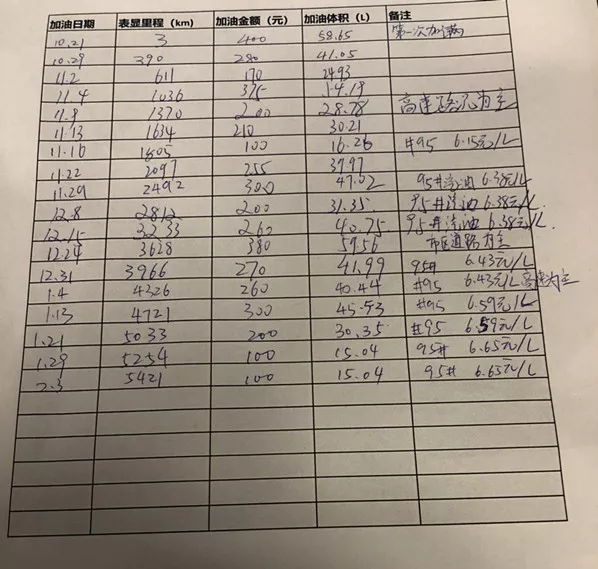 加油日期 表显里程（km） 加油金额（元） 加油体积（L） 备注
10.21 3 400 58.65 第一次加满
10.29 390 280 41.05
11.2 611 170 2493
11.4 1036 375
11.9 1370 200 28.78 高速路况为主
11.13 1634 210 30.21
11.16 1805 100 16.26 #95 6.15元/L
11.22 2097 255 37.97
11.29 2492 300 47.02 95#汽油 6.38元/L
12.8 2812 200 31.35 95#汽油 6.38元/L
12.15 3233 260 40.75 95#汽油 6.38元/L
12.24 3628 380 59.56 市区道路为主
12.31 3966 270 41.99 95# 6.43元/L
1.4 4326 260 40.44 #95 6.43元/L 高速为主
1.13 4721 300 45.53 #95 6.59元/L
1.21 5033 200 30.35 #95 6.59元/L
1.29 5254 100 15.04 95# 6.65元/L
2.3 5421 100 15.04 95# 6.65元/L